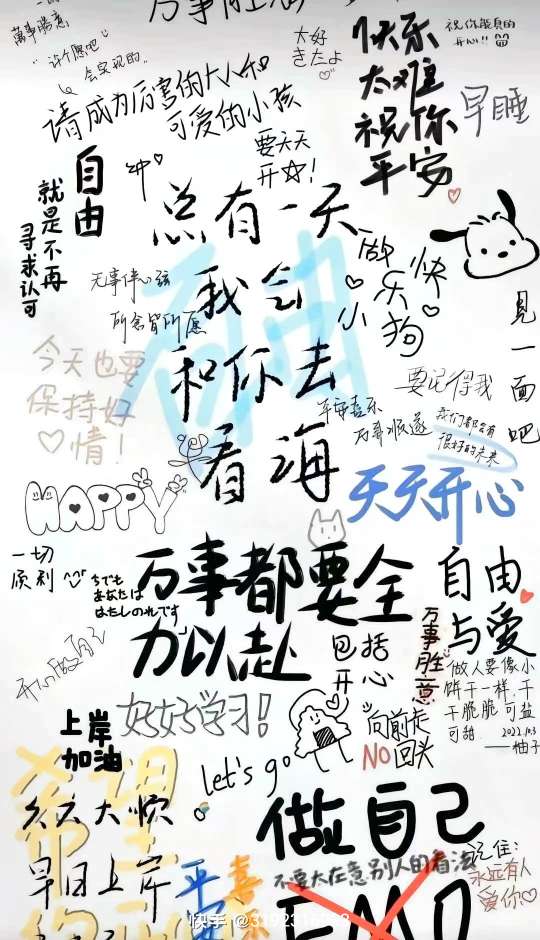 万事胜意
祝你能真的
开心!!
万事胜意
许个愿吧
会实现的..
太好
きたよ
快乐
太难
祝你
平安
早睡
请成为厉害的大人和
可爱的小孩
要天天
开☆!
自由
就是不再
寻求认可
冲
总有一天
我会
和你去
看海
做快
乐
小狗
见一面吧
无事绊心弦
所念皆所愿
今天也要
保持好
心情!
要记得我
平安喜乐
万事顺遂
我们都会有
很好的未来
HAPPY
天天开心
一切
顺利
ちでも
あなたは
はたしのれです
万事都要全
力以赴
包括
开心
自由
与爱
万事胜意
开心做自己
做人要像小
饼干一样,干
干脆脆 可盐
可甜.
2022.10.3
——柚子
好好学习!
上岸
加油
向前走
NO回头
Let's go
希望
久久大顺
早日上岸
平安
喜
做自己
不要太在意别人的看法
EMO
记住:
永远有人
爱你
快手